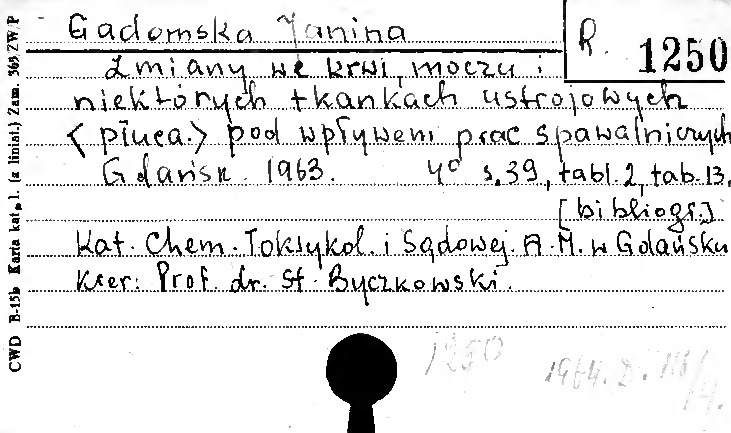 Gadomska Janina
R. 1250
Zmiany we krwi, moczu i
niektórych tkankach ustrojowych
<płuca.> pod wpływem prac spawalniczych
Gdańsk. 1963. 4° s.39, tabl.2, tab.13.
[bibliogr.]
Kat. Chem. Toksykol. i Sądowej. A.M. w Gdańsku
Kier: Prof. dr. St. Byczkowski.
1250
1964. D.
CWD B-15b Karta kat. pl. (z liniat.) Zam. 363 ZW/P